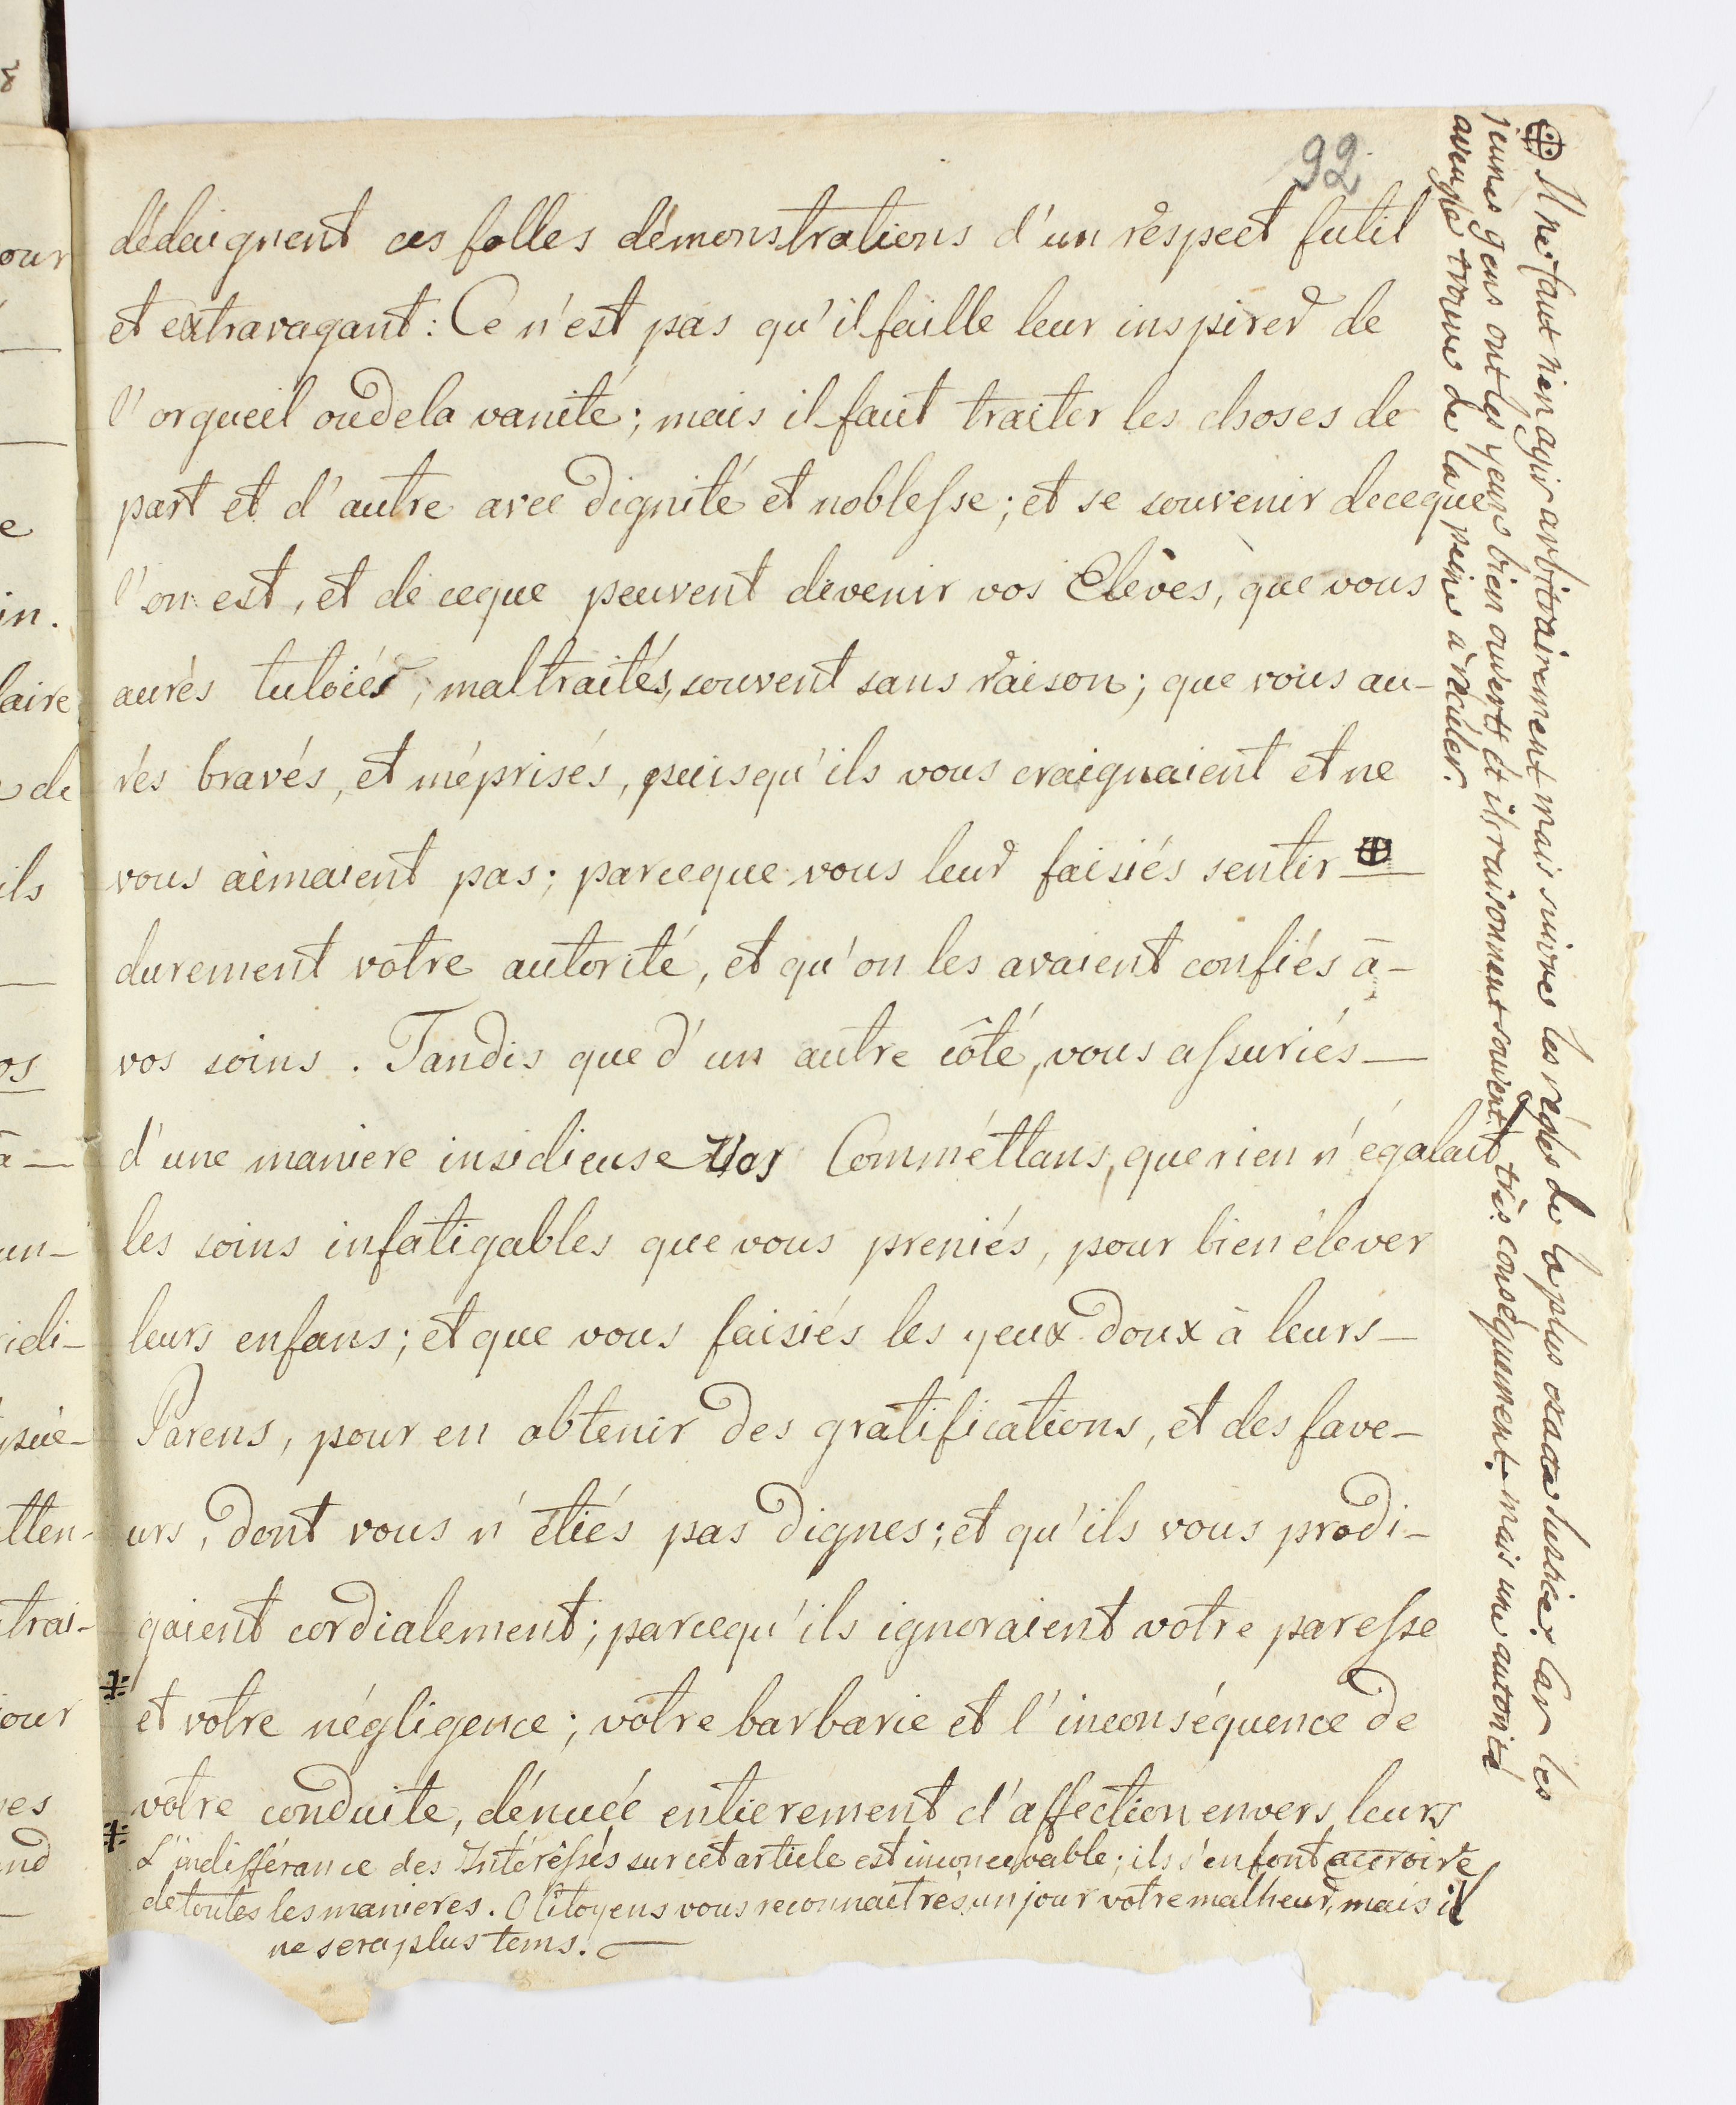 92.
dédaignent ces folles démonstrations d'un respect futil
et extravagant: Ce n'est pas qu'il faille leur inspirer de
l'orgueil ou de la vanité; mais il faut traiter les choses de
part et d'autre avec dignité et noblesse; et se souvenir de ceque
l'on est, et de ceque peuvent devenir vos Elèves, que vous
aurés tutoiés, maltraités, souvent sans raison; que vous au-
rés bravés, et méprisés, puisqu'ils vous craignaient et ne
vous aimaient pas; parceque vous leur faisiés sentir ⊕
durement votre autorité, et qu'on les avaient confiés à
vos soins. Tandis que d'un autre côté, vous assuriés
d'une maniere insidieuse Vos Comméttans, que rien n'égalait
les soins infatigables que vous preniés, pour bien élever
leurs enfans; et que vous faisiés les yeux doux à leurs
Parens, pour en obtenir des gratifications, et des fave-
urs, dont vous n'étiés pas dignes; et qu'ils vous prodi-
gaient cordialement; parcequ'ils ignoraient votre paresse
et votre négligence; votre barbarie et l'inconséquence de
votre conduite, dénuée entierement d'affection envers leurs
L'indifférance des Intéressés sur cet article est inconcevable; ils s'en font accroire
de toutes les manieres. O Citoyens vous reconnaitrés un jour votre malheur, mais il
ne sera plus tems.
⊕ Il ne faut rien agir arbitrairement mais suivre les régles de la plus exacte Justice. Car les
jeunes gens ont les yeux bien ouverts et ils raisonnent souvent très conséquament. mais une autorité
aveugle trouve de la peine à réculer.
our
e
in.
laire
de
ils
os
à
un-
idi-
tten-
trai-
jour
res
nd